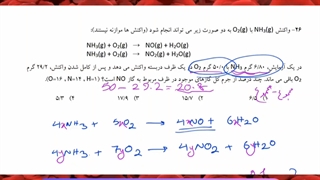 ۲۶- واکنش NH₃(g) با O₂(g) به دو صورت زیر می تواند انجام شود (واکنش ها موازنه نیستند):
NH₃(g) + O₂(g) → NO(g) + H₂O(g)
NH₃(g) + O₂(g) → NO₂(g) + H₂O(g)
در یک آزمایش، ۶/۸۰ گرم NH₃ با ۵۰/۰ گرم O₂ در یک ظرف دربسته واکنش می دهد و پس از کامل شدن واکنش، ۲۹/۲ گرم
O₂ باقی می ماند. چند درصد از جرم کل گازهای موجود در ظرف مربوط به گاز NO است؟ (O=۱۶ ، N=۱۴ ، H=۱)
۵/۳ (۴ ۱۷/۹ (۳ ۱۵/۷ (۲
50 - 29.2 = 20.8
4xNH₃ + 5xO₂ → 4xNO + 6xH₂O
4yNH₃ + 7yO₂ → 4yNO₂ + 6yH₂O